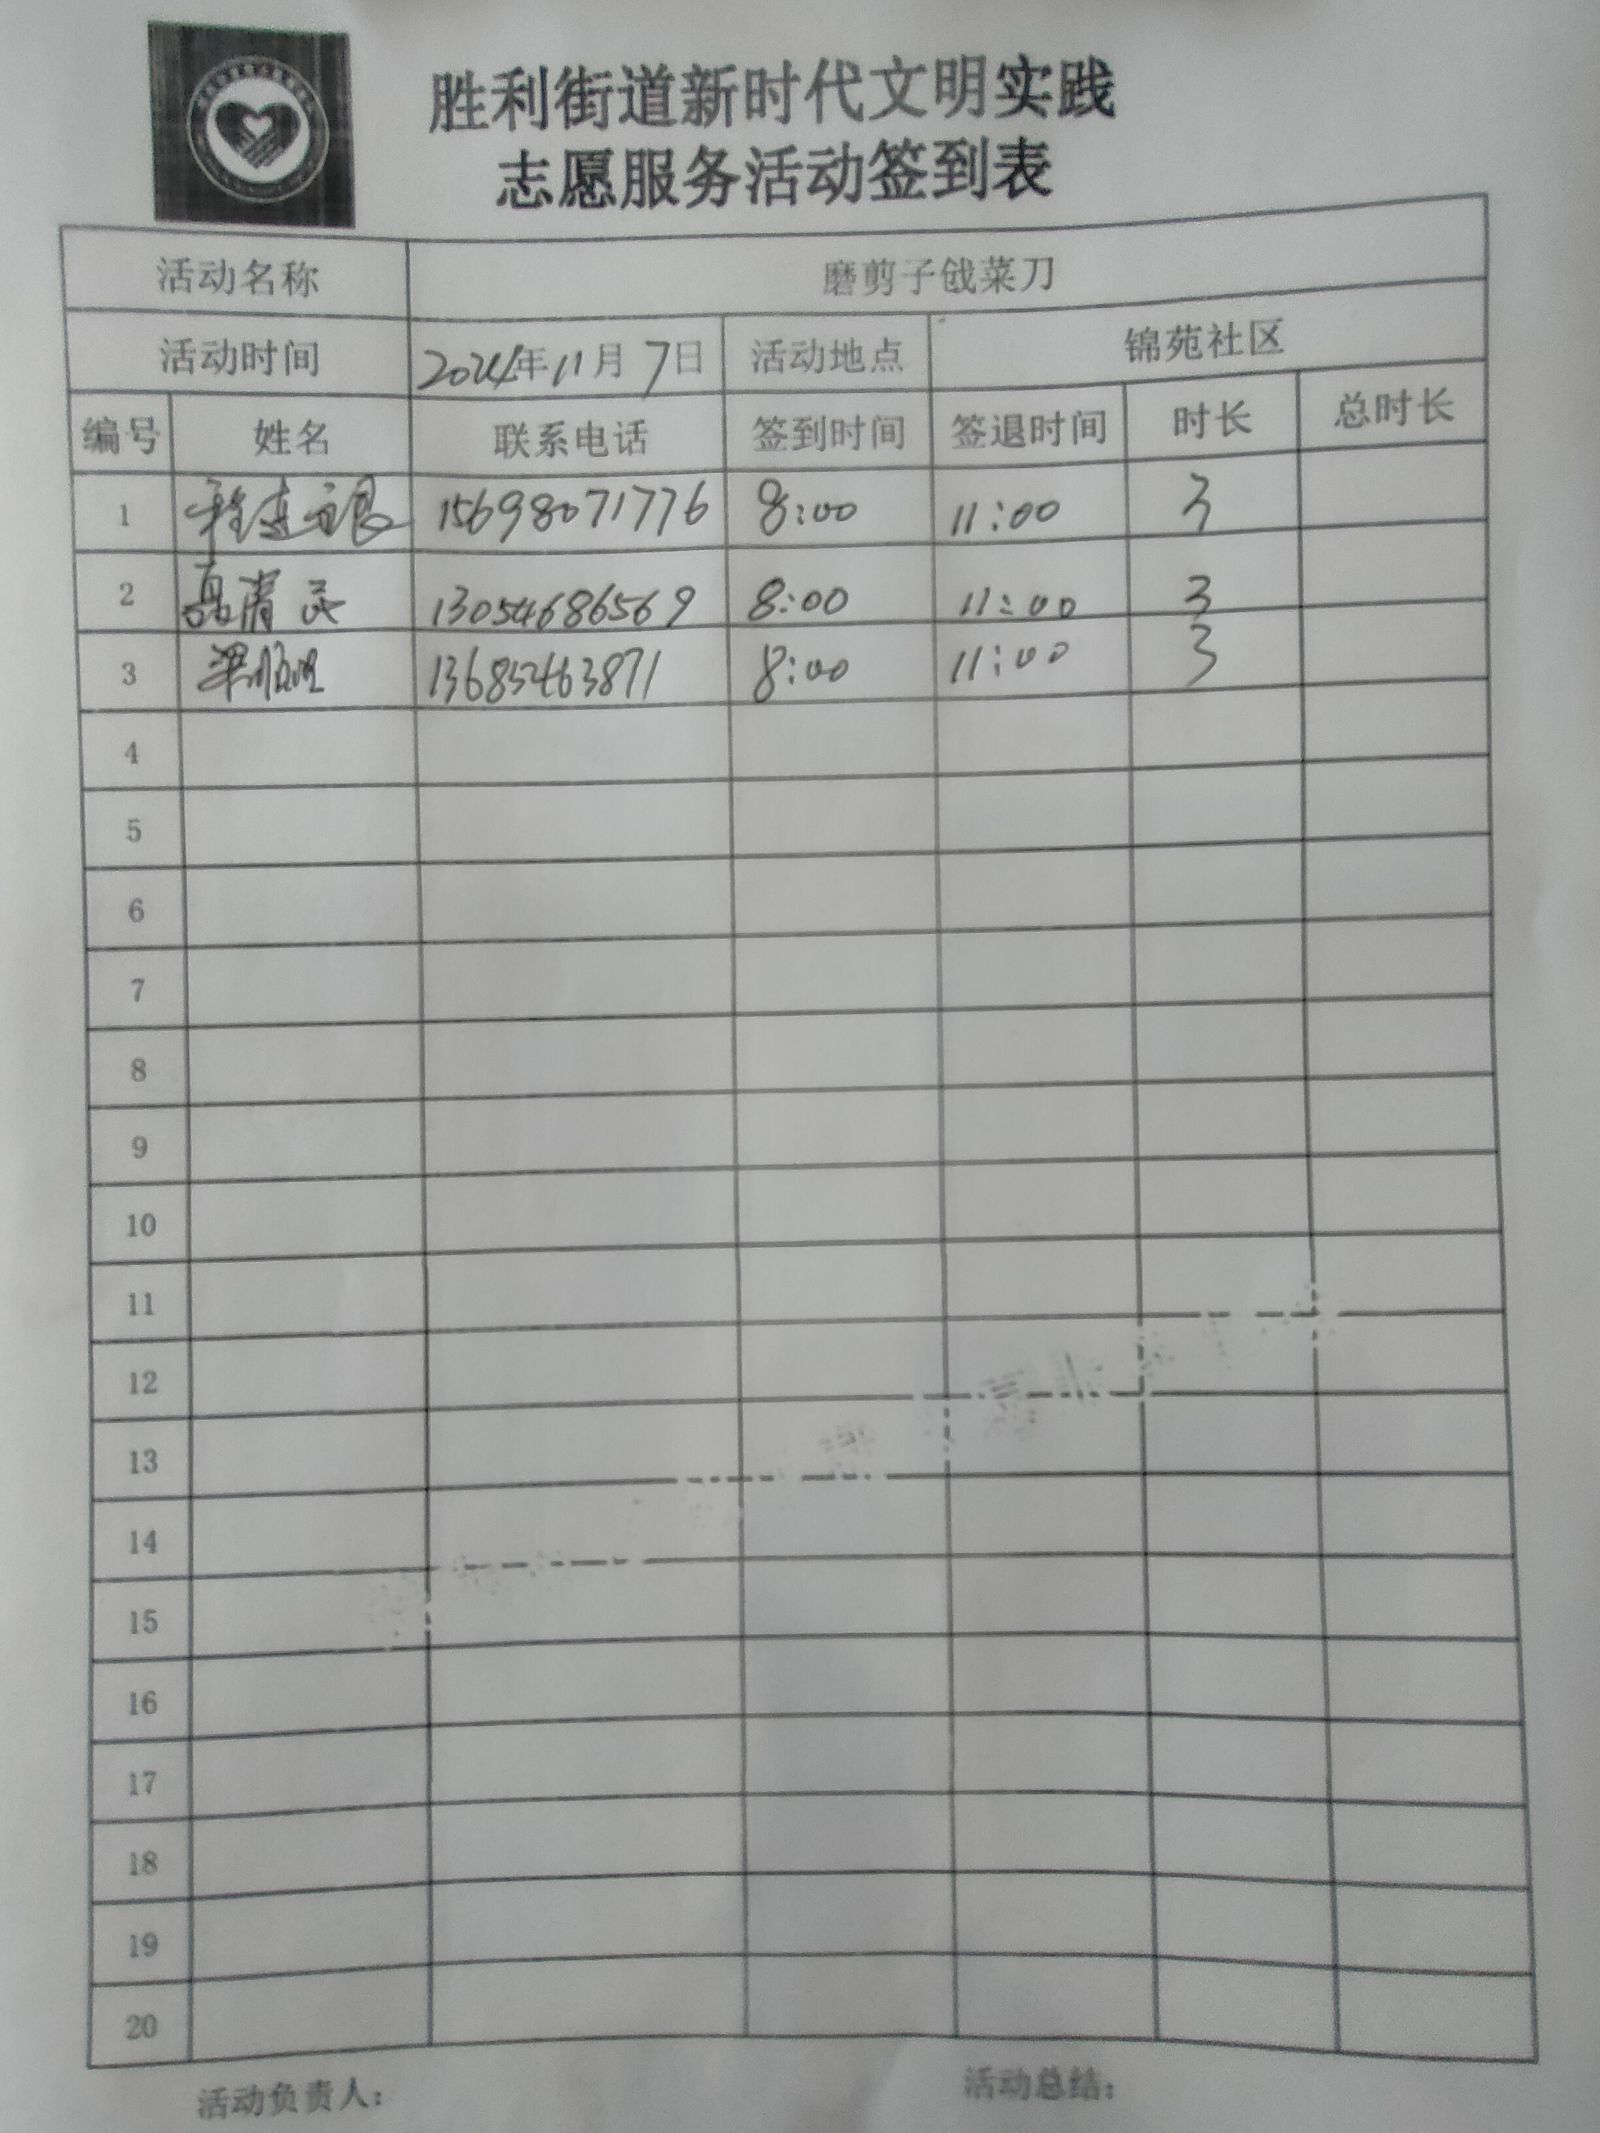 胜利街道新时代文明实践
志愿服务活动签到表
活动名称 磨剪子戗菜刀
活动时间 2024年11月7日 活动地点 锦苑社区
编号 姓名 联系电话 签到时间 签退时间 时长 总时长
1 15698071776 8:00 11:00 3
2 高清 13054686569 8:00 11:00 3
3 13685463871 8:00 11:00 3
4
5
6
7
8
9
10
11
12
13
14
15
16
17
18
19
20
活动负责人: 活动总结: